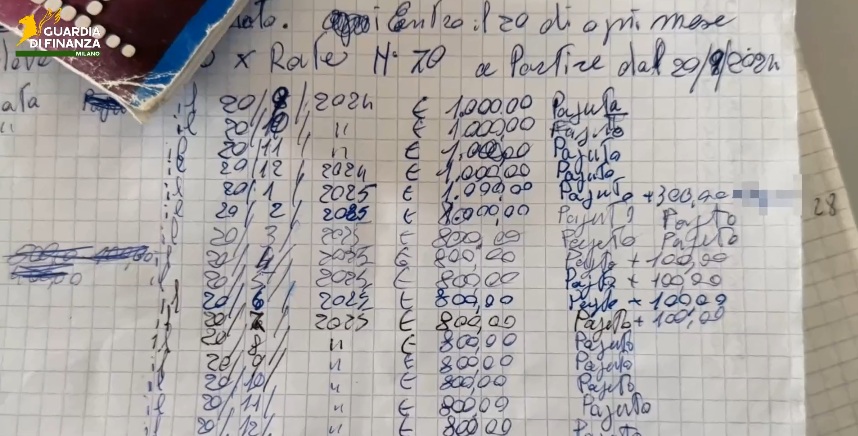 GUARDIA
DI FINANZA
MILANO
Entro il 20 di ogni mese
x Rate N° 70 a Partire dal 20/9/2024
il 20/9/2024 € 1.000,00 Pagata
il 20/10/ " € 1.000,00 Pagato
il 20/11/ " € 1.000,00 Pagato
20/12/2024 € 1.000,00 Pagato
20/1/2025 € 1.000,00 Pagato +300,00
20/2/2025 € 800,00 Pagato Pagato
28
20/3/2025 € 800,00 Pagato Pagato
20/4/2025 € 800,00 Pagato + 100,00
20/5/2025 € 800,00 Pagato + 100,00
il 20/6/2025 € 800,00 Pagato + 100,00
il 20/7/2025 € 800,00 Pagato + 100,00
il 20/8/ " € 800,00 Pagato
il 20/9/ " € 800,00 Pagato
il 20/10/ " € 800,00 Pagato
il 20/11/ " € 800,00 Pagato
il 20/12/ " € 800,00 Pagato